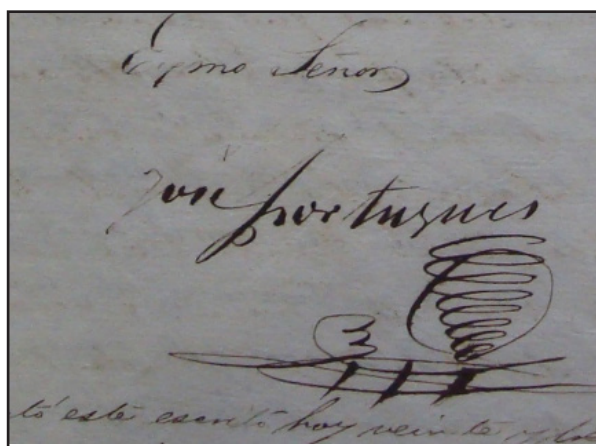 Exmo Señor
José Portugues
tó este escrito hoy veinte y